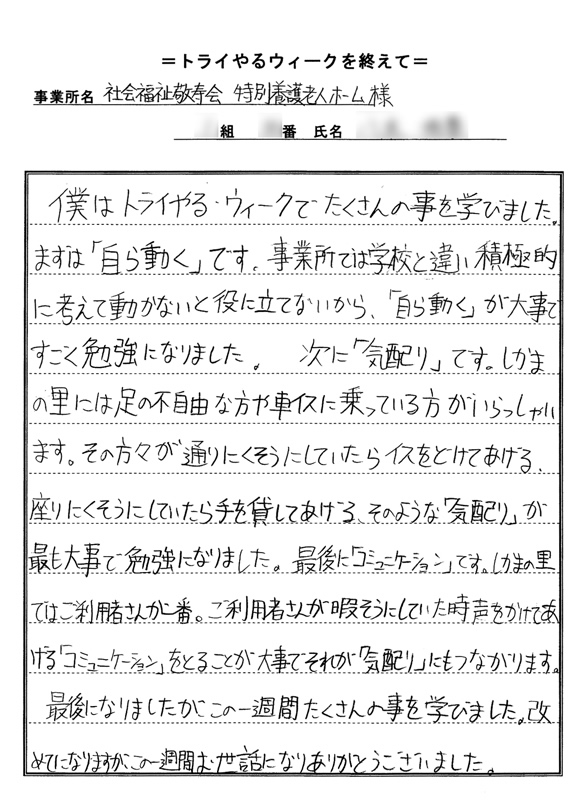 ＝トライやるウィークを終えて＝
事業所名 社会福祉敬寿会 特別養護老人ホーム様
組 番 氏名
僕はトライやる・ウィークでたくさんの事を学びました。
まずは「自ら動く」です。事業所では学校と違い積極的
に考えて動かないと役に立てないから、「自ら動く」が大事で
すごく勉強になりました。 次に「気配り」です。しかま
の里には足の不自由な方や車イスに乗っている方がいらっしゃい
ます。その方々が通りにくそうにしていたらイスをどけてあげる、
座りにくそうにしていたら手を貸してあげる、そのような「気配り」が
最も大事で勉強になりました。最後に「コミュニケーション」です。しかまの里
ではご利用者さんが一番。ご利用者さんが暇そうにしていた時声をかけてあ
げる「コミュニケーション」をとることが大事でそれが「気配り」にもつながります。
最後になりましたがこの一週間たくさんの事を学びました。改
めてになりますが、この一週間お世話になりありがとうございました。